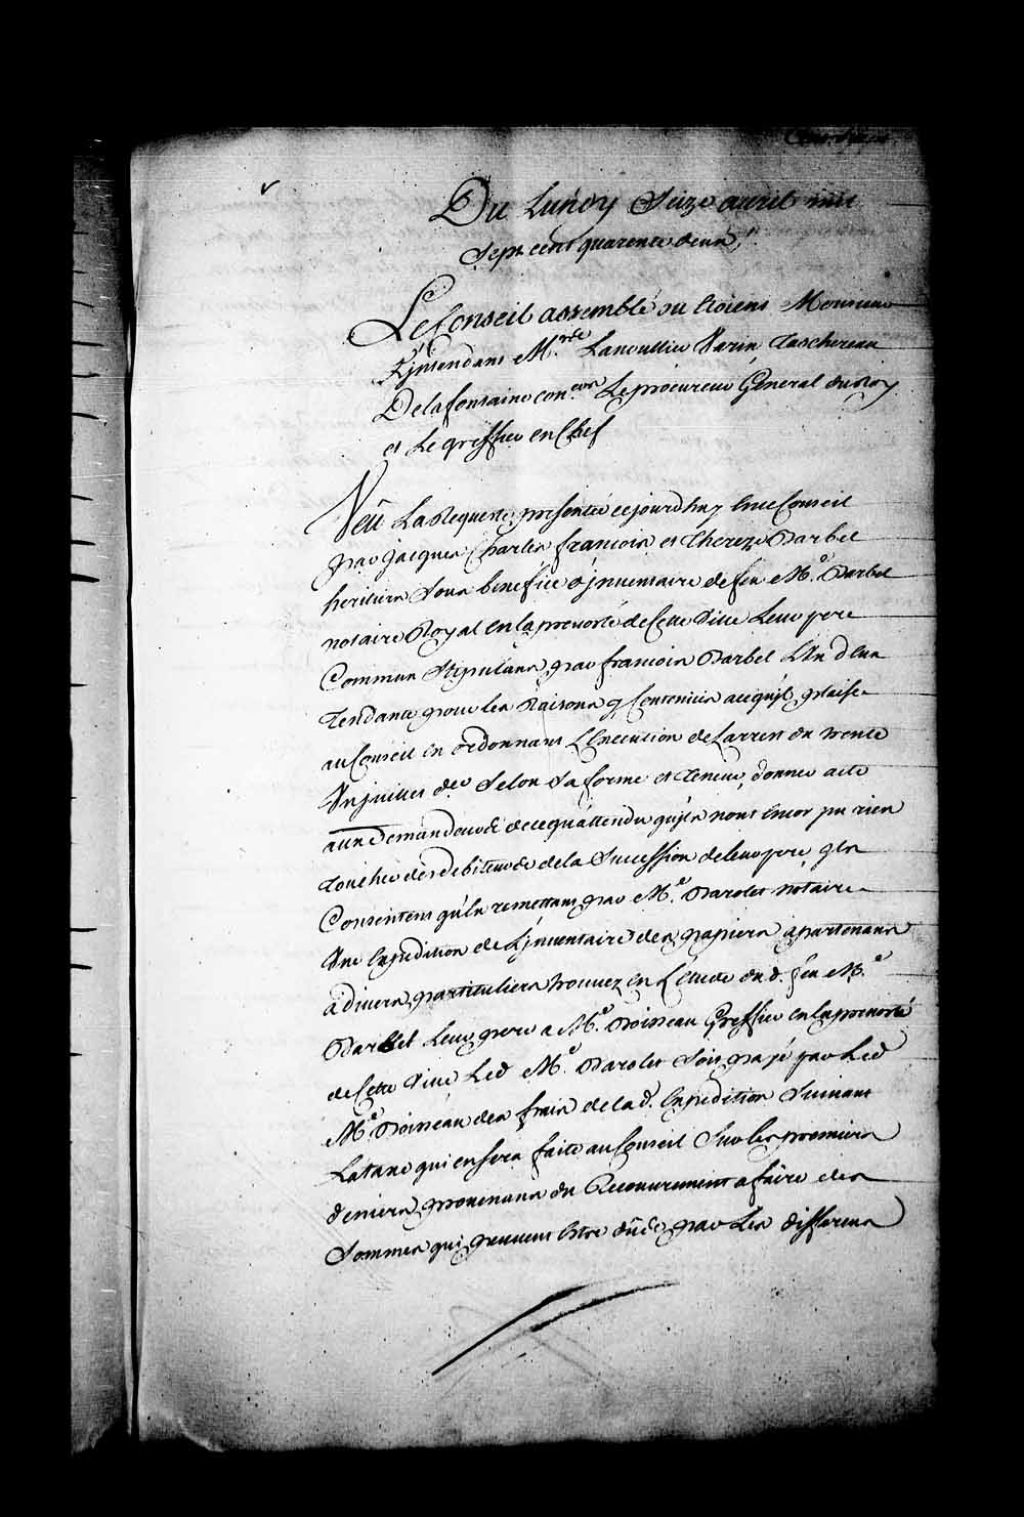 Du Lundy Seize avril mil
Sept cent quarente deux,
Le Conseil assemblé ou étoient Monsieur
L'jntendant M.rs Lanoullier Varin Taschereau
Delafontaine con.ers Le procureur General du Roy
et Le greffier en Chef
Veû La Requeste presentée cejourdhuy en ce Conseil
par jacques Charles francois et Thereze Barbel
heritiers sous benefice d'jnventaire de feu M.e Barbel
notaire Royal en la prevosté de Cette Ville Leur pere
Commun Stipulans par francois Barbel L'Un d'eux
Tendante pour les Raisons y Contenües acequ'jl plaise
au Conseil en ordonnant L'Execution de Larrest du trente
Un juillet der Selon Sa forme et Teneur, donner acte
aux Demandeurs de cequ'attendu qu'jls n'ont encor pu rien
toucher des debiteurs de la Succession de leur pere, jls
Consentent qu'en remettant par M.e Barolet Notaire
Une Expedition de L'jnventaire des papiers apartenans
a divers particuliers trouvez en L'etude du d. feu M.e
Barbel Leur pere a M.e Boisseau Greffier en la prevosté
de Cette Ville Led M.e Barolet Soit payé par Led
M.e Boisseau des frais de la d. Expedition Suivant
La taxe qui en Sera faite au Conseil Sur les premiers
deniers provenans du Recouvrement a faire des
Sommes qui peuvent Estre dües par Les differens